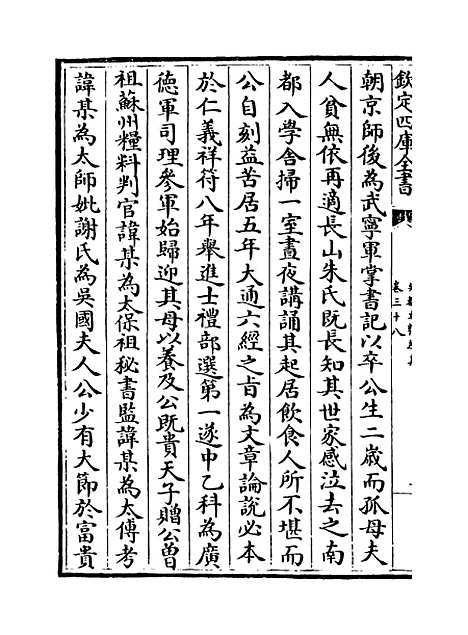 欽定四庫全書
卷三十八
朝京師後為武寧軍掌書記以卒公生二歲而孤母夫
人貧無依再適長山朱氏既長知其世家感泣去之南
都入學舍掃一室晝夜講誦其起居飲食人所不堪而
公自刻益苦居五年大通六經之旨為文章論說必本
於仁義祥符八年舉進士禮部選第一遂中乙科為廣
德軍司理參軍始歸迎其母以養及公既貴天子贈公曾
祖蘇州糧料判官諱某為太保祖秘書監諱某為太傅考
諱某為太師妣謝氏為吳國夫人公少有大節於富貴